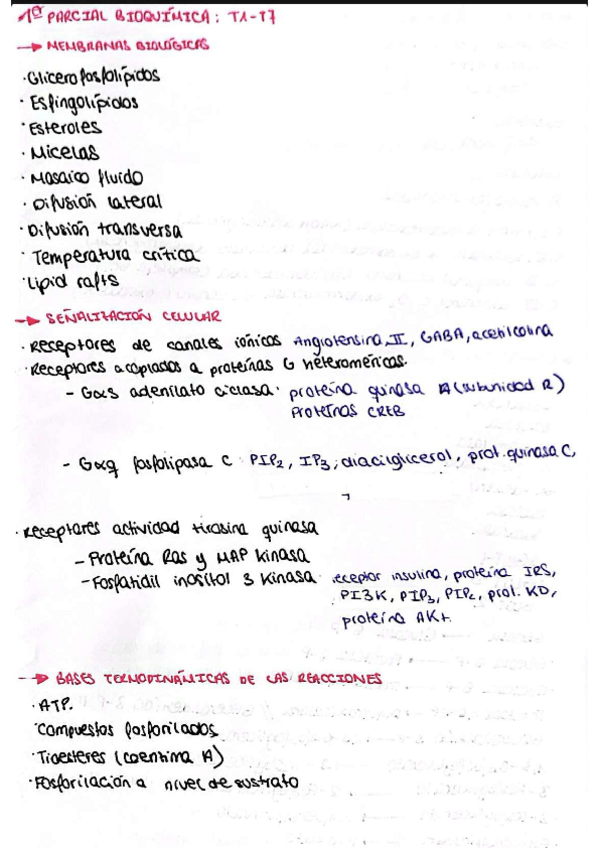 1º PARCIAL BIOQUÍMICA: T1-T7
→ MEMBRANAS BIOLÓGICAS
· Glicerofosfolípidos
· Esfingolípidos
· Esteroles
· Micelas
· Mosaico fluido
· Difusión lateral
· Difusión transversa
· Temperatura crítica
· Lipid rafts
→ SEÑALIZACIÓN CELULAR
· Receptores de canales iónicos Angiotensina II, GABA, acetilcolina
· Receptores acoplados a proteínas G heteroméricas.
- Gαs adenilato ciclasa: proteína quinasa A (subunidad R)
Proteínas CREB
- Gαq fosfolipasa C: PIP2, IP3, diacilglicerol, prot. quinasa C,
· Receptores actividad tirosina quinasa
- Proteína Ras y MAP Kinasa
- Fosfatidil inositol 3 Kinasa: receptor insulina, proteína IRS,
PI3K, PIP3, PIP2, prot. KD,
proteína AKt
→ BASES TERMODINÁMICAS DE LAS REACCIONES
· ATP.
· Compuestos fosforilados
· Tioésteres (coenzima A)
· Fosforilación a nivel de sustrato